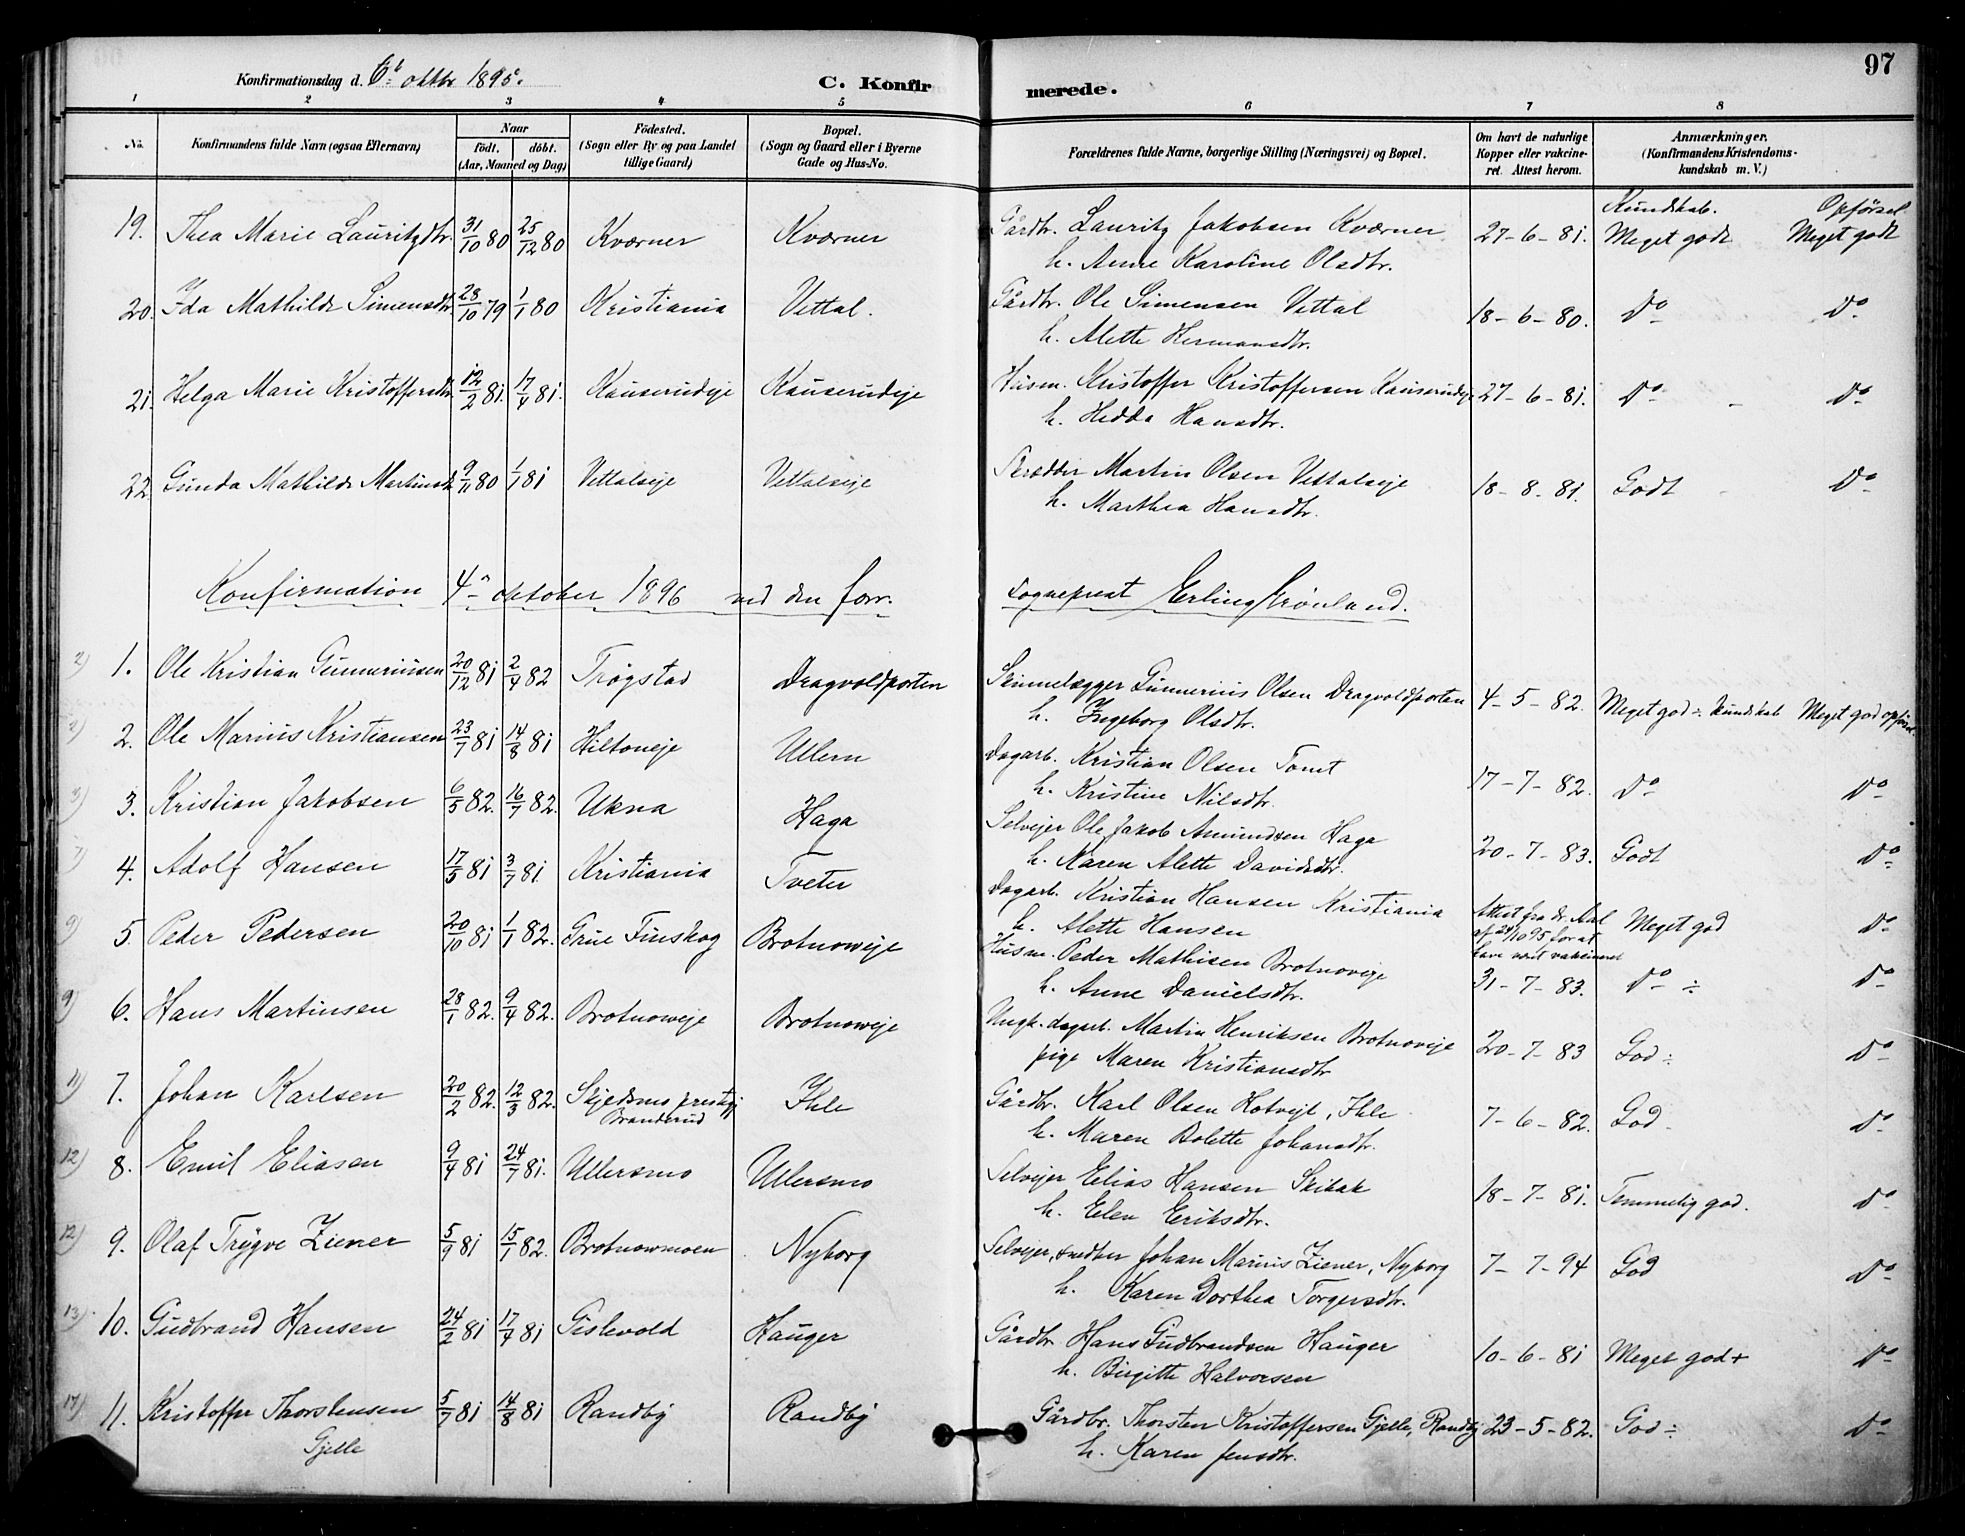 97
Konfirmationsdag d. 6t oktbr 1895.
C. Konfirmerede.
1 2 3 4 5 6 7 8
No. Konfirmandens fulde Navn (ogsaa Efternavn) Naar født. døbt. (Aar, Maaned og Dag) Fødested. (Sogn eller By og paa Landet tillige Gaard) Bopæl. (Sogn og Gaard eller i Byerne Gade og Hus-No. Forældrenes fulde Navne, borgerlige Stilling (Næringsvei) og Bopæl. Om havt de naturlige Kopper eller vakcineret. Attest herom. Anmærkninger. (Konfirmandens Kristendomskundskab m. V.)
Kundskab. Opførsel.
19. Thea Marie Lauritzdtr. 31/10 80 25/12 80 Kværner Kværner Gårdbr. Lauritz Jakobsen Kværner 27-6-81. Meget godt Meget godt
h. Anne Karoline Olsdtr.
20. Ida Mathilde Simensdtr. 28/10 79 1/1 80 Kristiania Vettal. Gårdbr. Ole Simensen Vettal 18-6-80. Do Do
h. Alette Hermansdtr.
21. Helga Marie Kristoffersdtr. 12/2 81. 17/4 81. Kauserudeje Kauserudeje Husm. Kristoffer Kristoffersen Kauserudeje 27-6-81. Do - Do
h. Hedda Hansdtr.
22. Gunda Mathilde Martinsdtr 9/11 80 1/1 81 Vettalseje Vettalseje Skrædder Martin Olsen Vettalseje 18-8-81. Godt - Do
h. Marthea Hansdtr.
Konfirmation 4. oktober 1896 ved den forr. sognepræst Erling Grönland.
2) 1. Ole Kristian Gunneriusen 20/12 81 2/4 82 Trøgstad Dragvoldporten Skinnelægger Gunnerius Olsen Dragvoldporten 4-5-82. Meget god ÷ kundskab Meget god opførsel
h. Ingeborg Olsdtr.
2. Ole Marius Kristiansen 23/7 81 14/8 81 Hiltoneje Ullern Dagarb. Kristian Olsen Tomt 17-7-82. Do Do
h. Kristine Nilsdtr.
3) 3. Kristian Jakobsen 6/5 82. 16/7 82. Ukna Haga Selvejer Ole Jakob Amundsen Haga 20-7-83. Godt Do
h. Karen Alette Davidsdtr.
7) 4. Adolf Hansen 17/5 81 3/7 81. Kristiania Tveter Dagarb. Kristian Hansen Kristiania Attest fra dr. Aal af 24/10 95 for at have været vaksineret Meget god Do
h. Alette Hansen
9) 5. Peder Pedersen 20/10 81 1/1 82. Grue Finskog Brotnoweje Husm. Peder Mathisen Brotnoveje 31-7-83. Do ÷ Do
h. Anne Danielsdtr.
9) 6. Hans Martinsen 28/1 82. 9/4 82. Brotnoweje Brotnoweje Ungk. dagarb. Martin Henriksen Brotnoveje 20-7-83 God ÷ Do
pige Maren Kristiansdtr
11) 7. Johan Karlsen 20/2 82. 12/3 82. Skjedsmo prestgj. Branderud Ihle Gårdbr. Karl Olsen Hotvejt, Ihle 7-6-82. God Do
h. Maren Bolette Johansdtr.
12) 8. Emil Eliasen 9/4 81 24/7 81. Ullersmo Ullersmo Selvejer Elias Hansen Skibak 18-7-81. Temmelig god. Do
h. Elen Eriksdtr.
12) 9. Olaf Trygve Ziener 5/9 81 15/1 82. Brotnowmoen Nyborg Selvejer, snedker Johan Marius Ziener, Nyborg 7-7-94 God Do
h. Karen Dorthea Torgersdtr.
13) 10. Gudbrand Hansen 24/2 81 17/4 81 Gislevold Hauger Gårdbr Hans Gudbrandsen Hauger 10-6-81 Meget god+ Do
h. Birgitte Halvorsen
17) 11. Kristoffer Thorstensen Gjelle 5/7 81 14/8 81 Randby Randby Gårdbr. Thorsten Kristoffersen Gjelle, Randby 23-5-82. God ÷ Do
h. Karen Jensdtr.